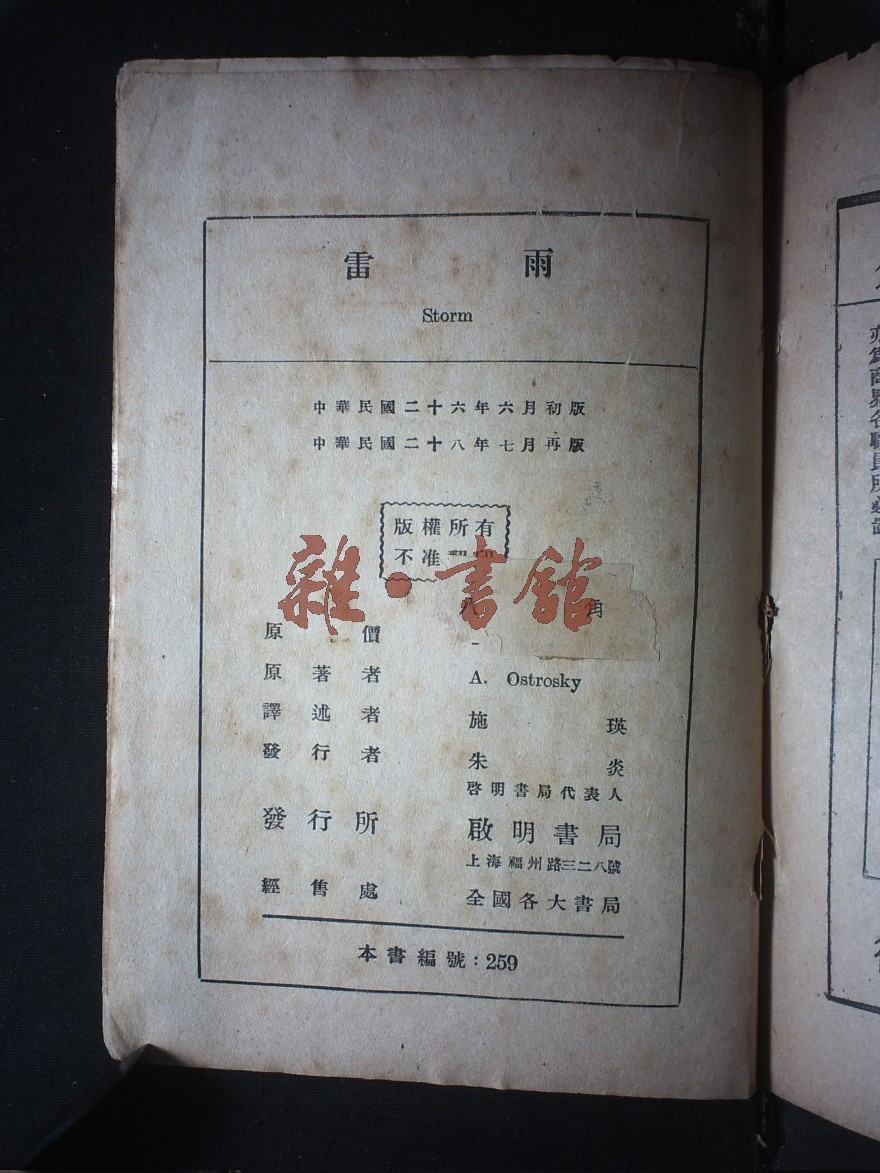 雷雨
Storm
中華民國二十六年六月初版
中華民國二十八年七月再版
版權所有
不准
雜·書館
角
原價
原著者 A. Ostrosky
譯述者 施瑛
發行者 朱炎
啓明書局代表人
發行所 啟明書局
上海福州路三二八號
經售處 全國各大書局
本書編號：259
亦爲商界各職員所必